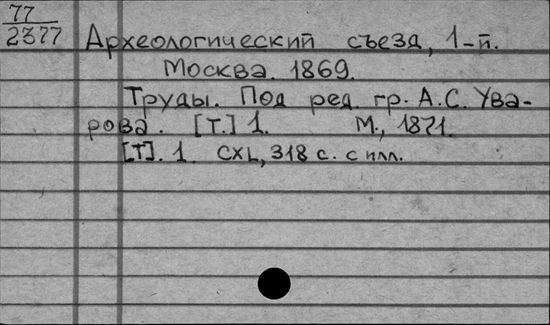 77
2377
Археологический съезд, 1-й.
Москва. 1869.
Труды. Под ред. гр. А.С. Ува-
рова. [Т.] 1. М., 1871.
[Т]. 1. CXL, 318 с. с илл.